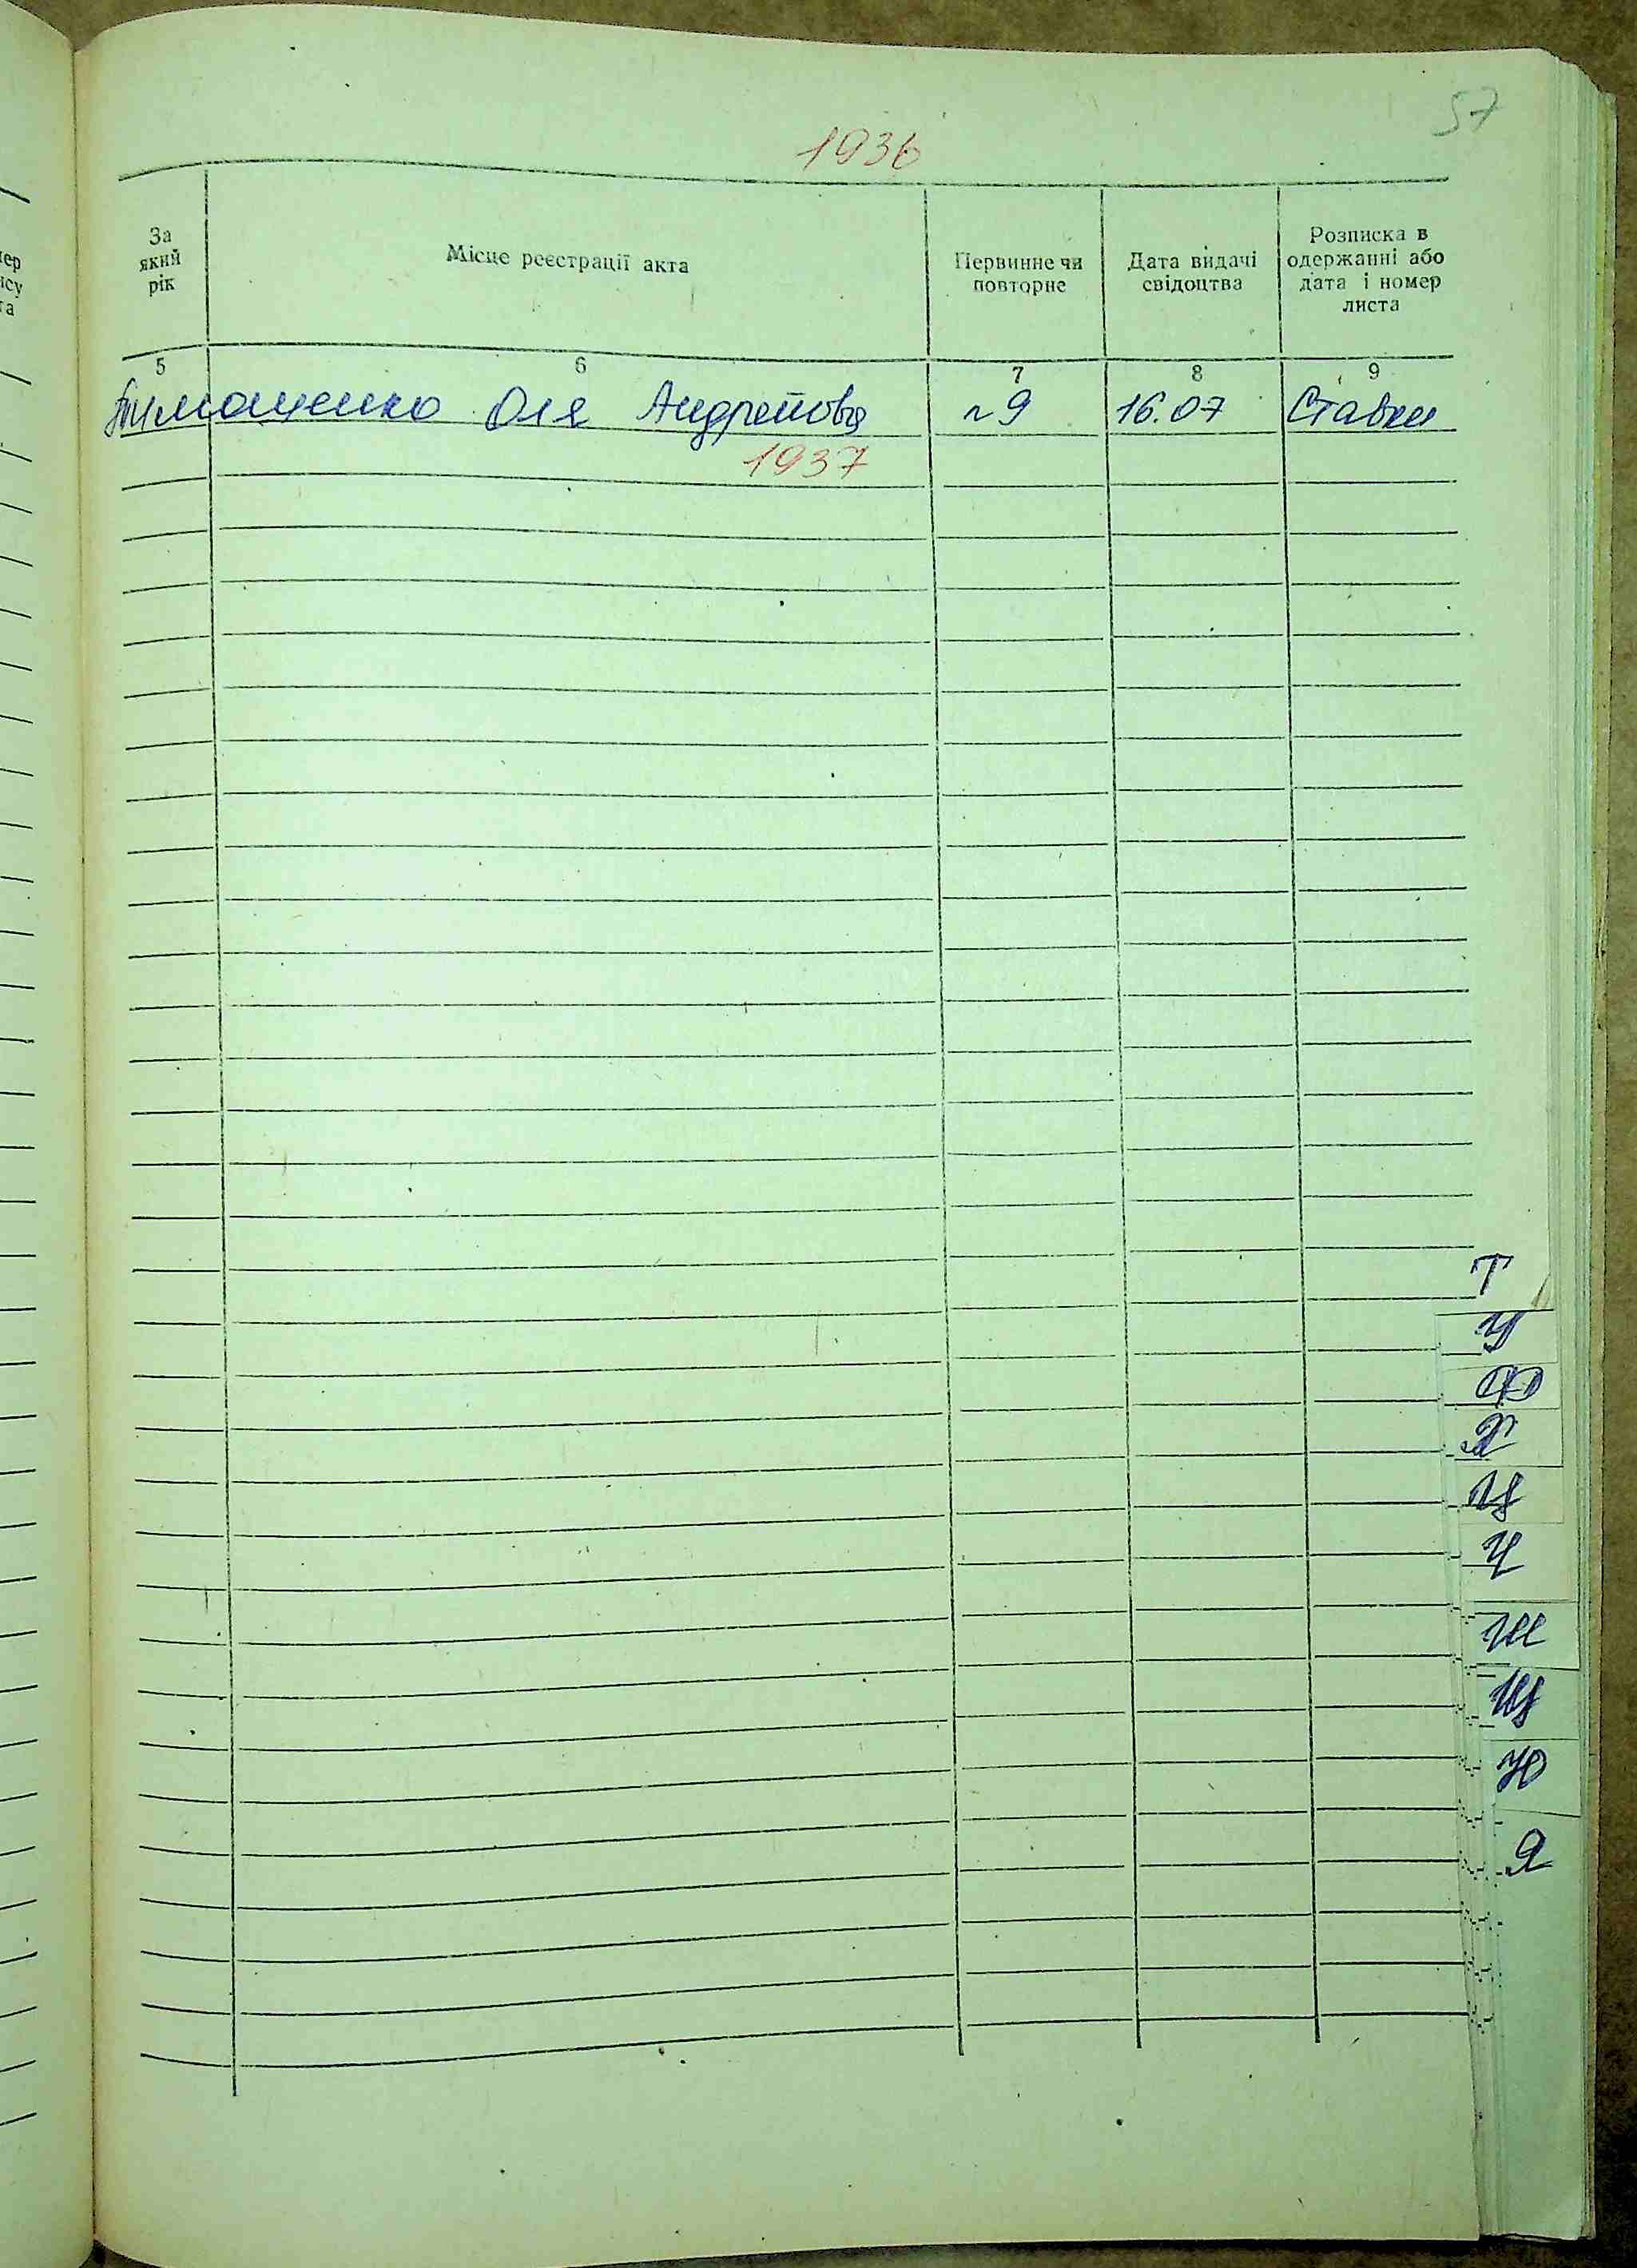 57
1936
За який рік
Місце реєстрації акта
Первинне чи повторне
Дата видачі свідоцтва
Розписка в одержанні або дата і номер листа
5 6 7 8 9
Тимощенко Оля Андреївна №9 16.07 Ставки
1937
Т
У
Ф
Х
Ц
Ч
Ш
Щ
Ю
Я